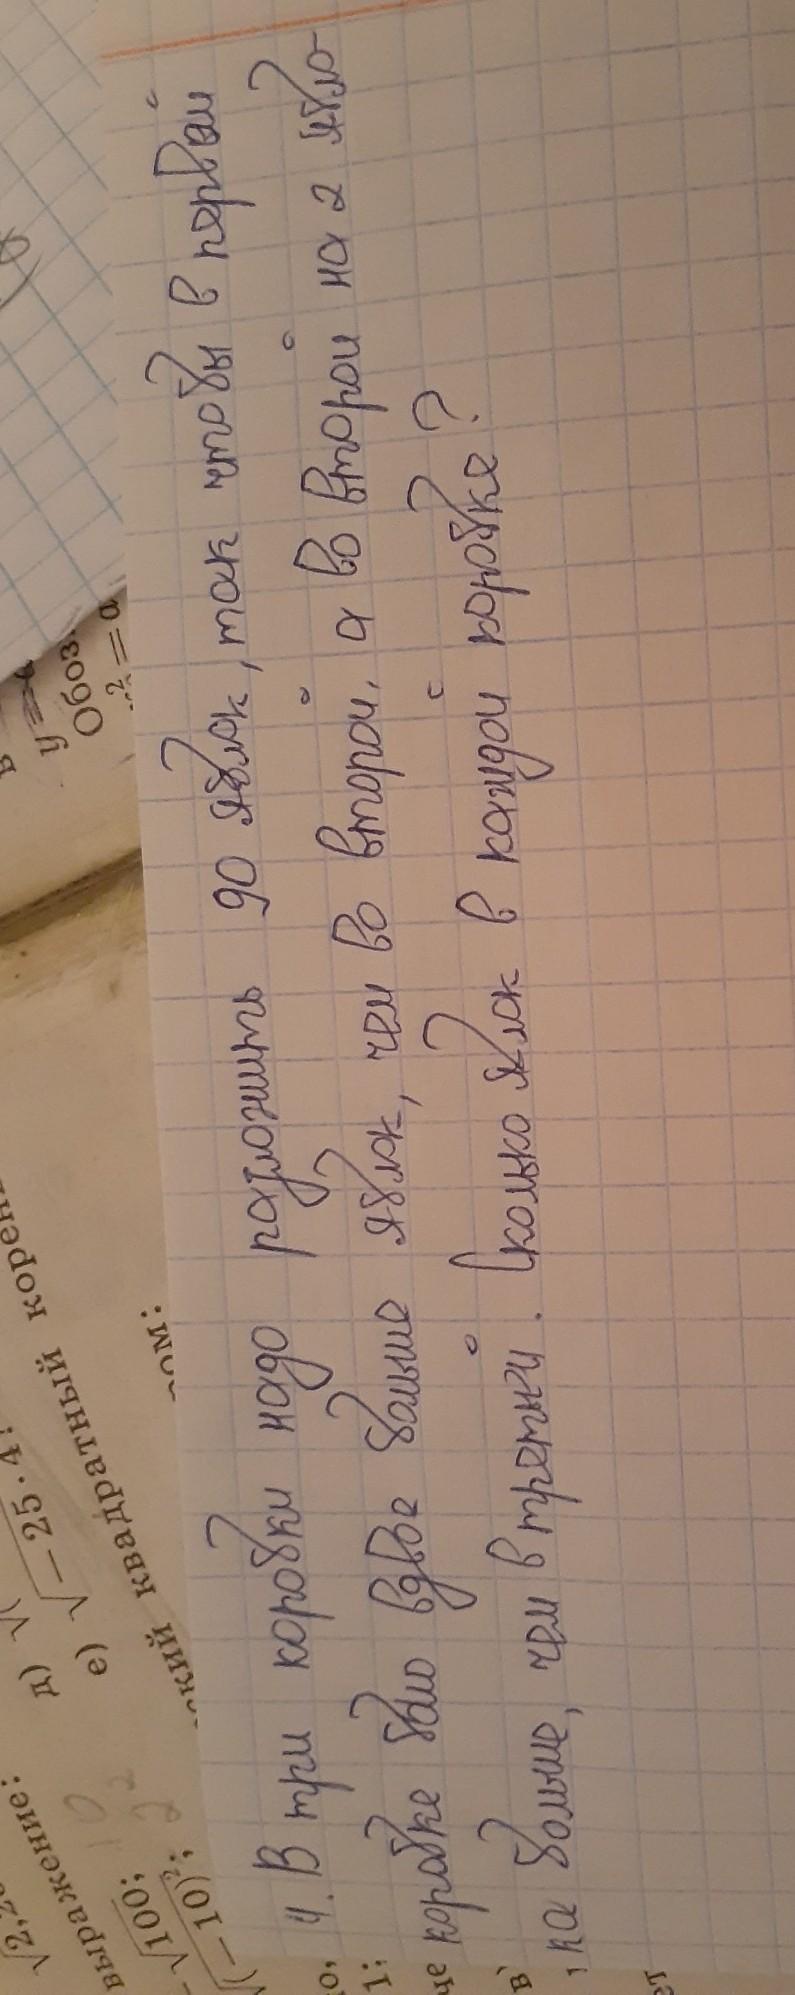 4. В три коробки надо разложить 90 яблок, так чтобы в первой
коробке было вдвое больше яблок, чем во второй, а во второй на 2 ябло-
ка больше, чем в третьей. Сколько яблок в каждой коробке?
выражение:
√100;
д)
е) √−25·4;
квадратный корень
y =
Обоз